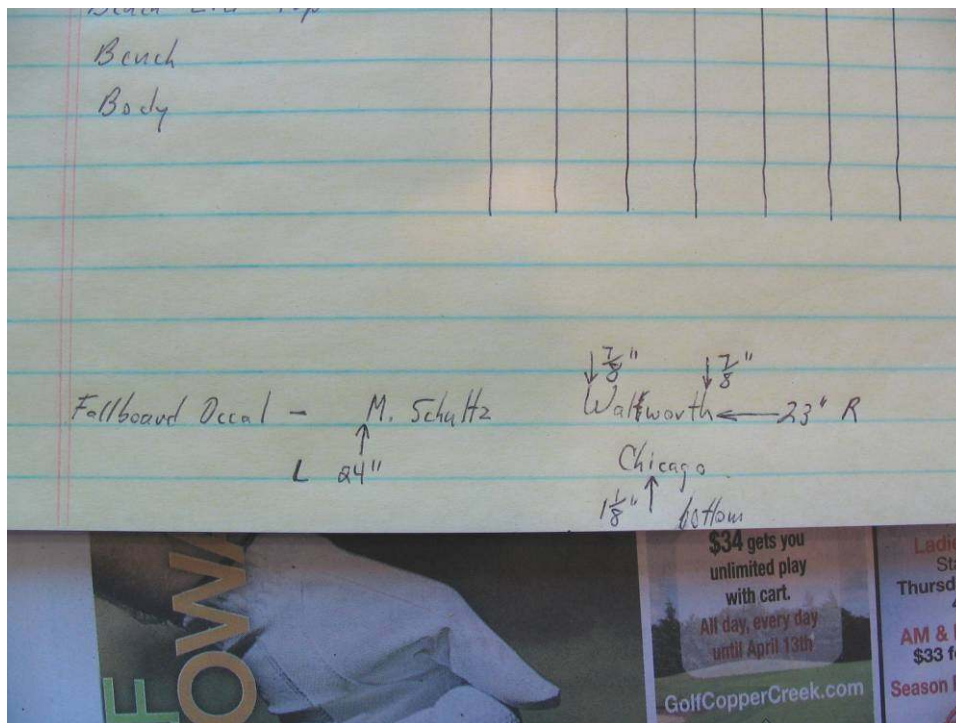 Bench
Body
7/8" 7/8"
Fallboard Decal - M. Schultz Walkworth ← 23" R
L 24" Chicago
1 1/8" bottom
OWA
$34 gets you
unlimited play
with cart.
All day, every day
until April 13th
GolfCopperCreek.com
Ladie
St
Thursd
AM &
$33 f
Season